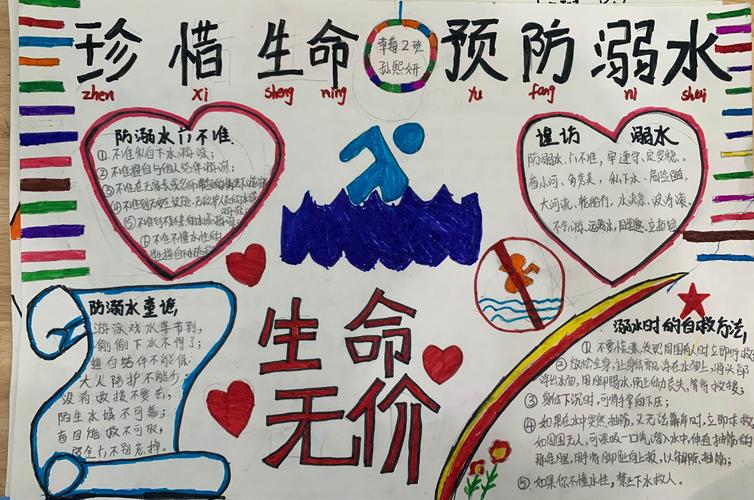 珍惜生命 预防溺水
zhen xi sheng ming yu fang ni shui
草莓2班
孙熙妍
防溺水六不准
①不准私自下水游泳；
②不准擅自与他人结伴游泳；
③不准在无家长或
④不准到无安全设施、无救护人员的水域
游泳；
⑤不准到不熟悉的水域游泳；
⑥不准不懂水性的
擅自下水施救
溺水
防溺水，六不准，早遵守，定安稳。
水流急
防溺水童谣
游泳戏水季节到，
下水不得了；
擅自结伴不能保
大人防护不能少
没有救援不要去，
陌生水域不可靠；
盲目施救不可取，
生命无价
溺水时的自救方法，
①不要慌张，发现周围有人时立即呼救
②放松全身，让身体飘浮在水面上，将头部
浮出水面，用脚踢水，防止体力丧失，等待救援；
③身体下沉时，可将手掌向下压；
④如果在水中突然抽筋，又无法靠岸时，立即求救，
如周围无人，可深吸一口气潜入水中，伸直抽筋的
那条腿，用手将脚趾向上扳，以解除抽筋；
⑤如果你不懂水性，禁止下水救人。